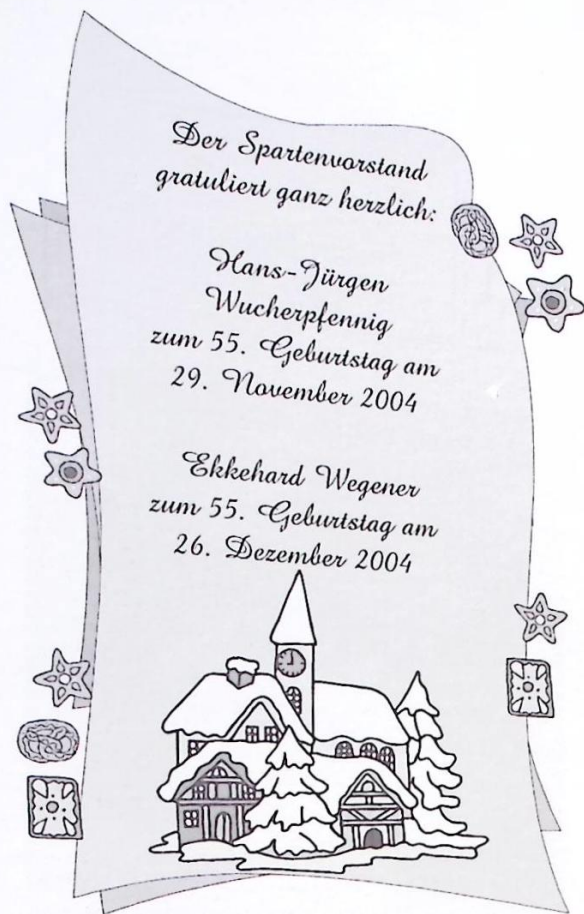 Der Spartenvorstand
gratuliert ganz herzlich:
Hans-Jürgen
Wucherpfennig
zum 55. Geburtstag am
29. November 2004
Ekkehard Wegener
zum 55. Geburtstag am
26. Dezember 2004